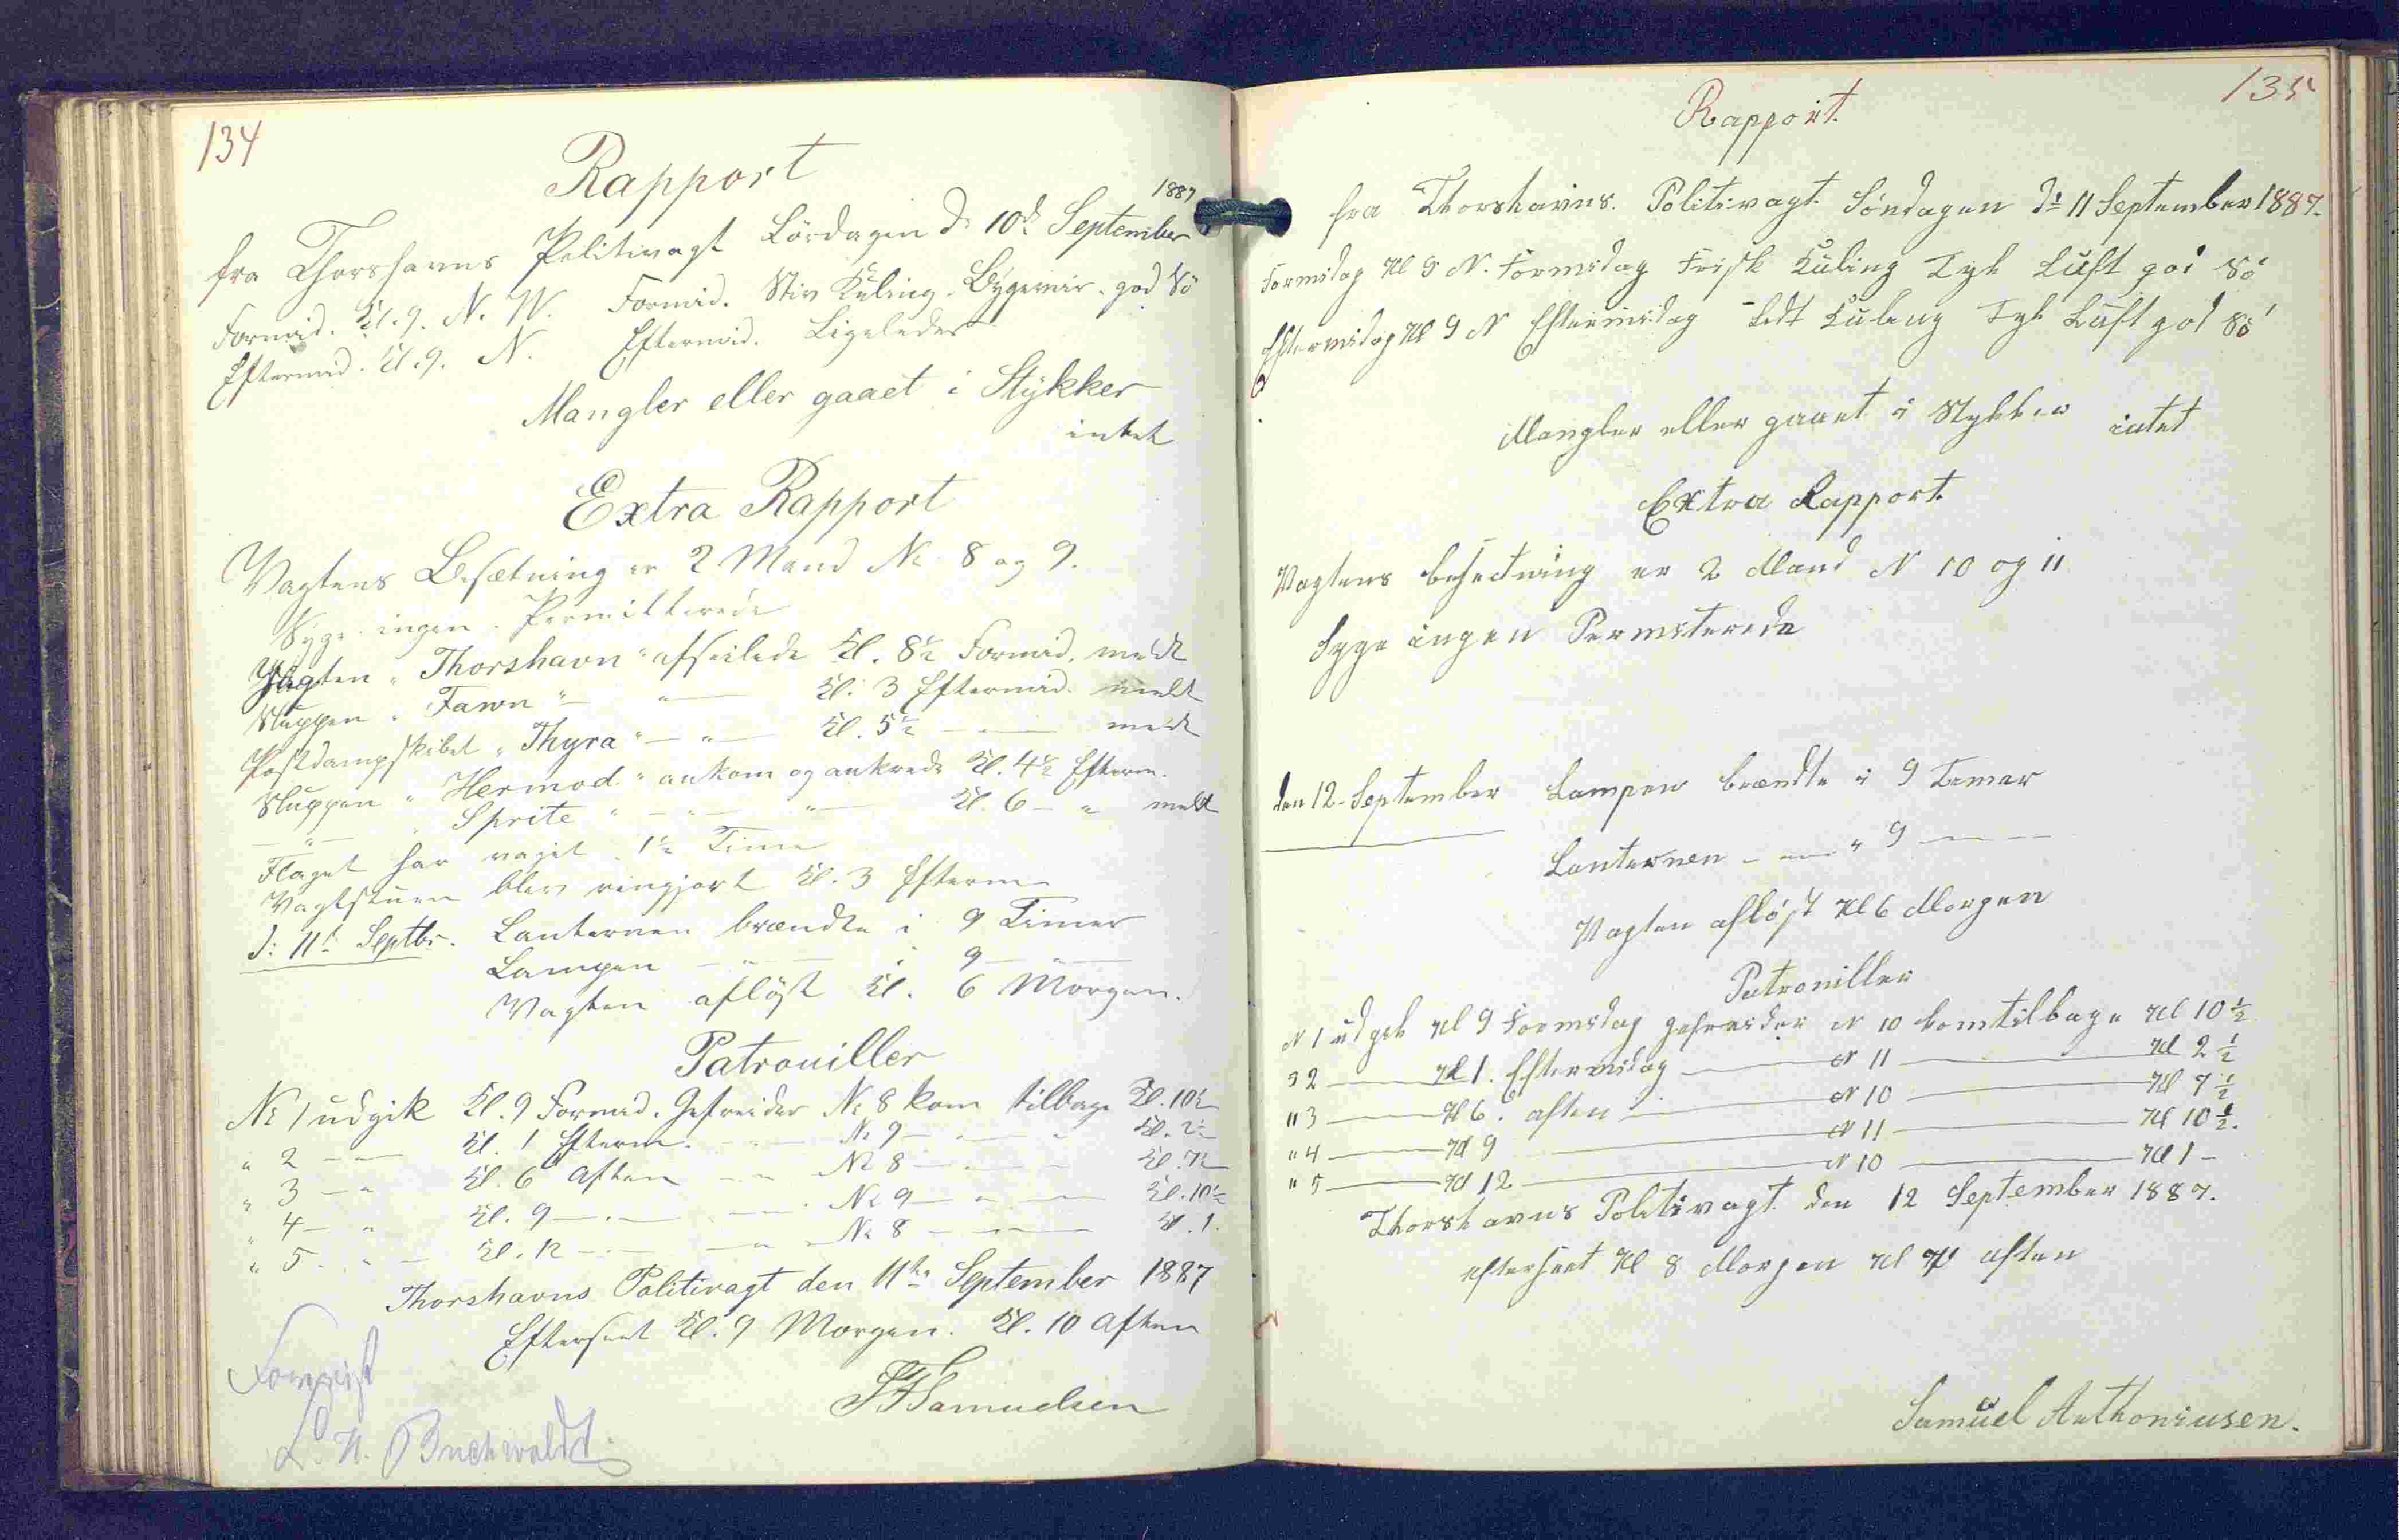 134
Rapport
1887
fra Thorshavns Politivagt Lördagen d: 10de September
Formid. Kl. 9. N. W. Formid. Stiv Kuling. Bygeveir. god Sö
Eftermid. Kl. 9. N. Eftermid. Ligeledes
Mangler eller gaaet i Stykker
intet
Extra Rapport
Vagtens Besætning er 2 Mand No 8 og 9.
Syge ingen. Permitterede
Jagten "Thorshavn" afseilede Kl. 8½ Formid. meldt
Sluppen "Fawn" — " — Kl. 3 Eftermid. meldt
Postdampskibet "Thyra" — " — Kl. 5½ — " — meldt
Sluppen "Hermod" ankom og ankrede Kl. 4½ Efterm.
— " — "Sprite" — " — " — Kl. 6 — " meldt
Flaget har vajet 1½ Time
Vagtstuen blev rengjort Kl. 3 Efterm
d: 11te Septbr. Lanternen brændte i 9 Timer
Lampen — " — " 9 — " —
Vagten aflöst Kl. 6 Morgen.
Patrouiller
No 1 udgik Kl. 9 Formid. Gefreider No 8 kom tilbage Kl. 10½
" 2 — — Kl. 1 Efterm. — — No 9 — — " Kl. 2½
" 3 — " Kl. 6 Aften — " No 8 — " — " Kl. 7½
" 4 — " Kl. 9 — " — — " No 9 — " — Kl. 10½
" 5 " — Kl. 12 — " — — " — No 8 — — Kl. 1.
Thorshavns Politivagt den 11te September 1887
Efterseet Kl. 9 Morgen. Kl. 10 Aften
Samuelsen
Forevist
Buchwaldt
135
Rapport.
fra Thorshavns. Politivagt. Söndagen d: 11 September 1887.
Formidag Kl 9 N. Formidag Frisk Kuling Tyk Luft god Sö
Eftermidag Kl 9 N Eftermidag Ledt Kuling Tyk Luft god Sö
Mangler eller gaaet i Stykker intet
Extra Rapport.
Vagtens besetning er 2 Mand N 10 og 11
Syge ingen Permiterede
den 12. September Lampen brændte i 9 Timer
Lanternen — " — " 9 — —
Vagten aflöst Kl 6 Morgen
Patrouiller
N 1 udgik Kl 9 Formidag gefreider N 10 kom tilbage Kl 10½
" 2 — Kl 1. Eftermidag — N 11 — Kl 2½
" 3 — Kl 6. aften — N 10 — Kl 7½
" 4 — Kl 9 — N 11 — Kl 10½.
" 5 — Kl 12 — N 10 — Kl 1 —
Thorshavns Politivagt. den 12 September 1887.
efterseet Kl 8 Morgen Kl aften
Samuel Anthoniusen.